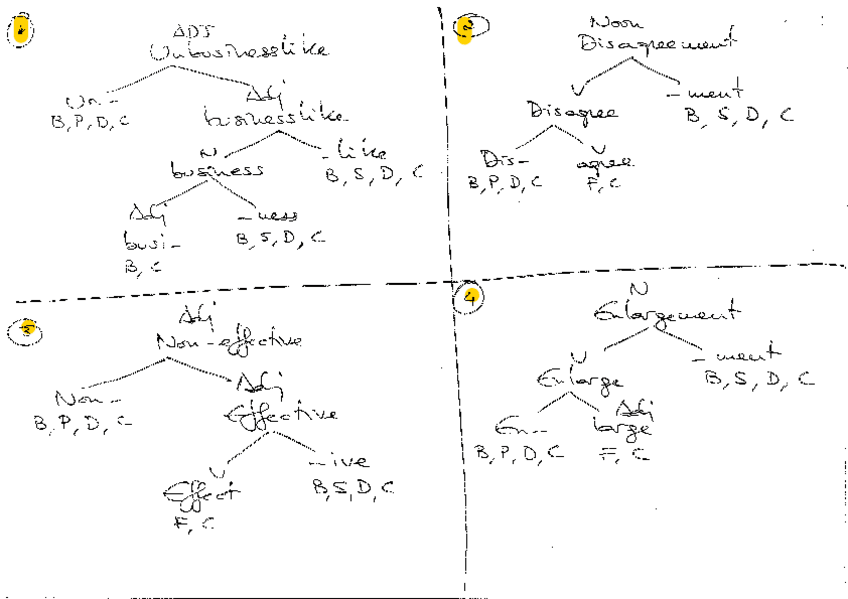 1
ADJ
Unbusinesslike
Un-
B, P, D, C
Adj
businesslike
N
business
-like
B, S, D, C
Adj
busi-
B, C
-ness
B, S, D, C
2
Noon
Disagreement
V
Disagree
-ment
B, S, D, C
Dis-
B, P, D, C
V
agree
F, C
3
Adj
Non-effective
Non-
B, P, D, C
Adj
Effective
V
Effect
F, C
-ive
B, S, D, C
4
N
Enlargement
V
Enlarge
-ment
B, S, D, C
En-
B, P, D, C
Adj
large
F, C